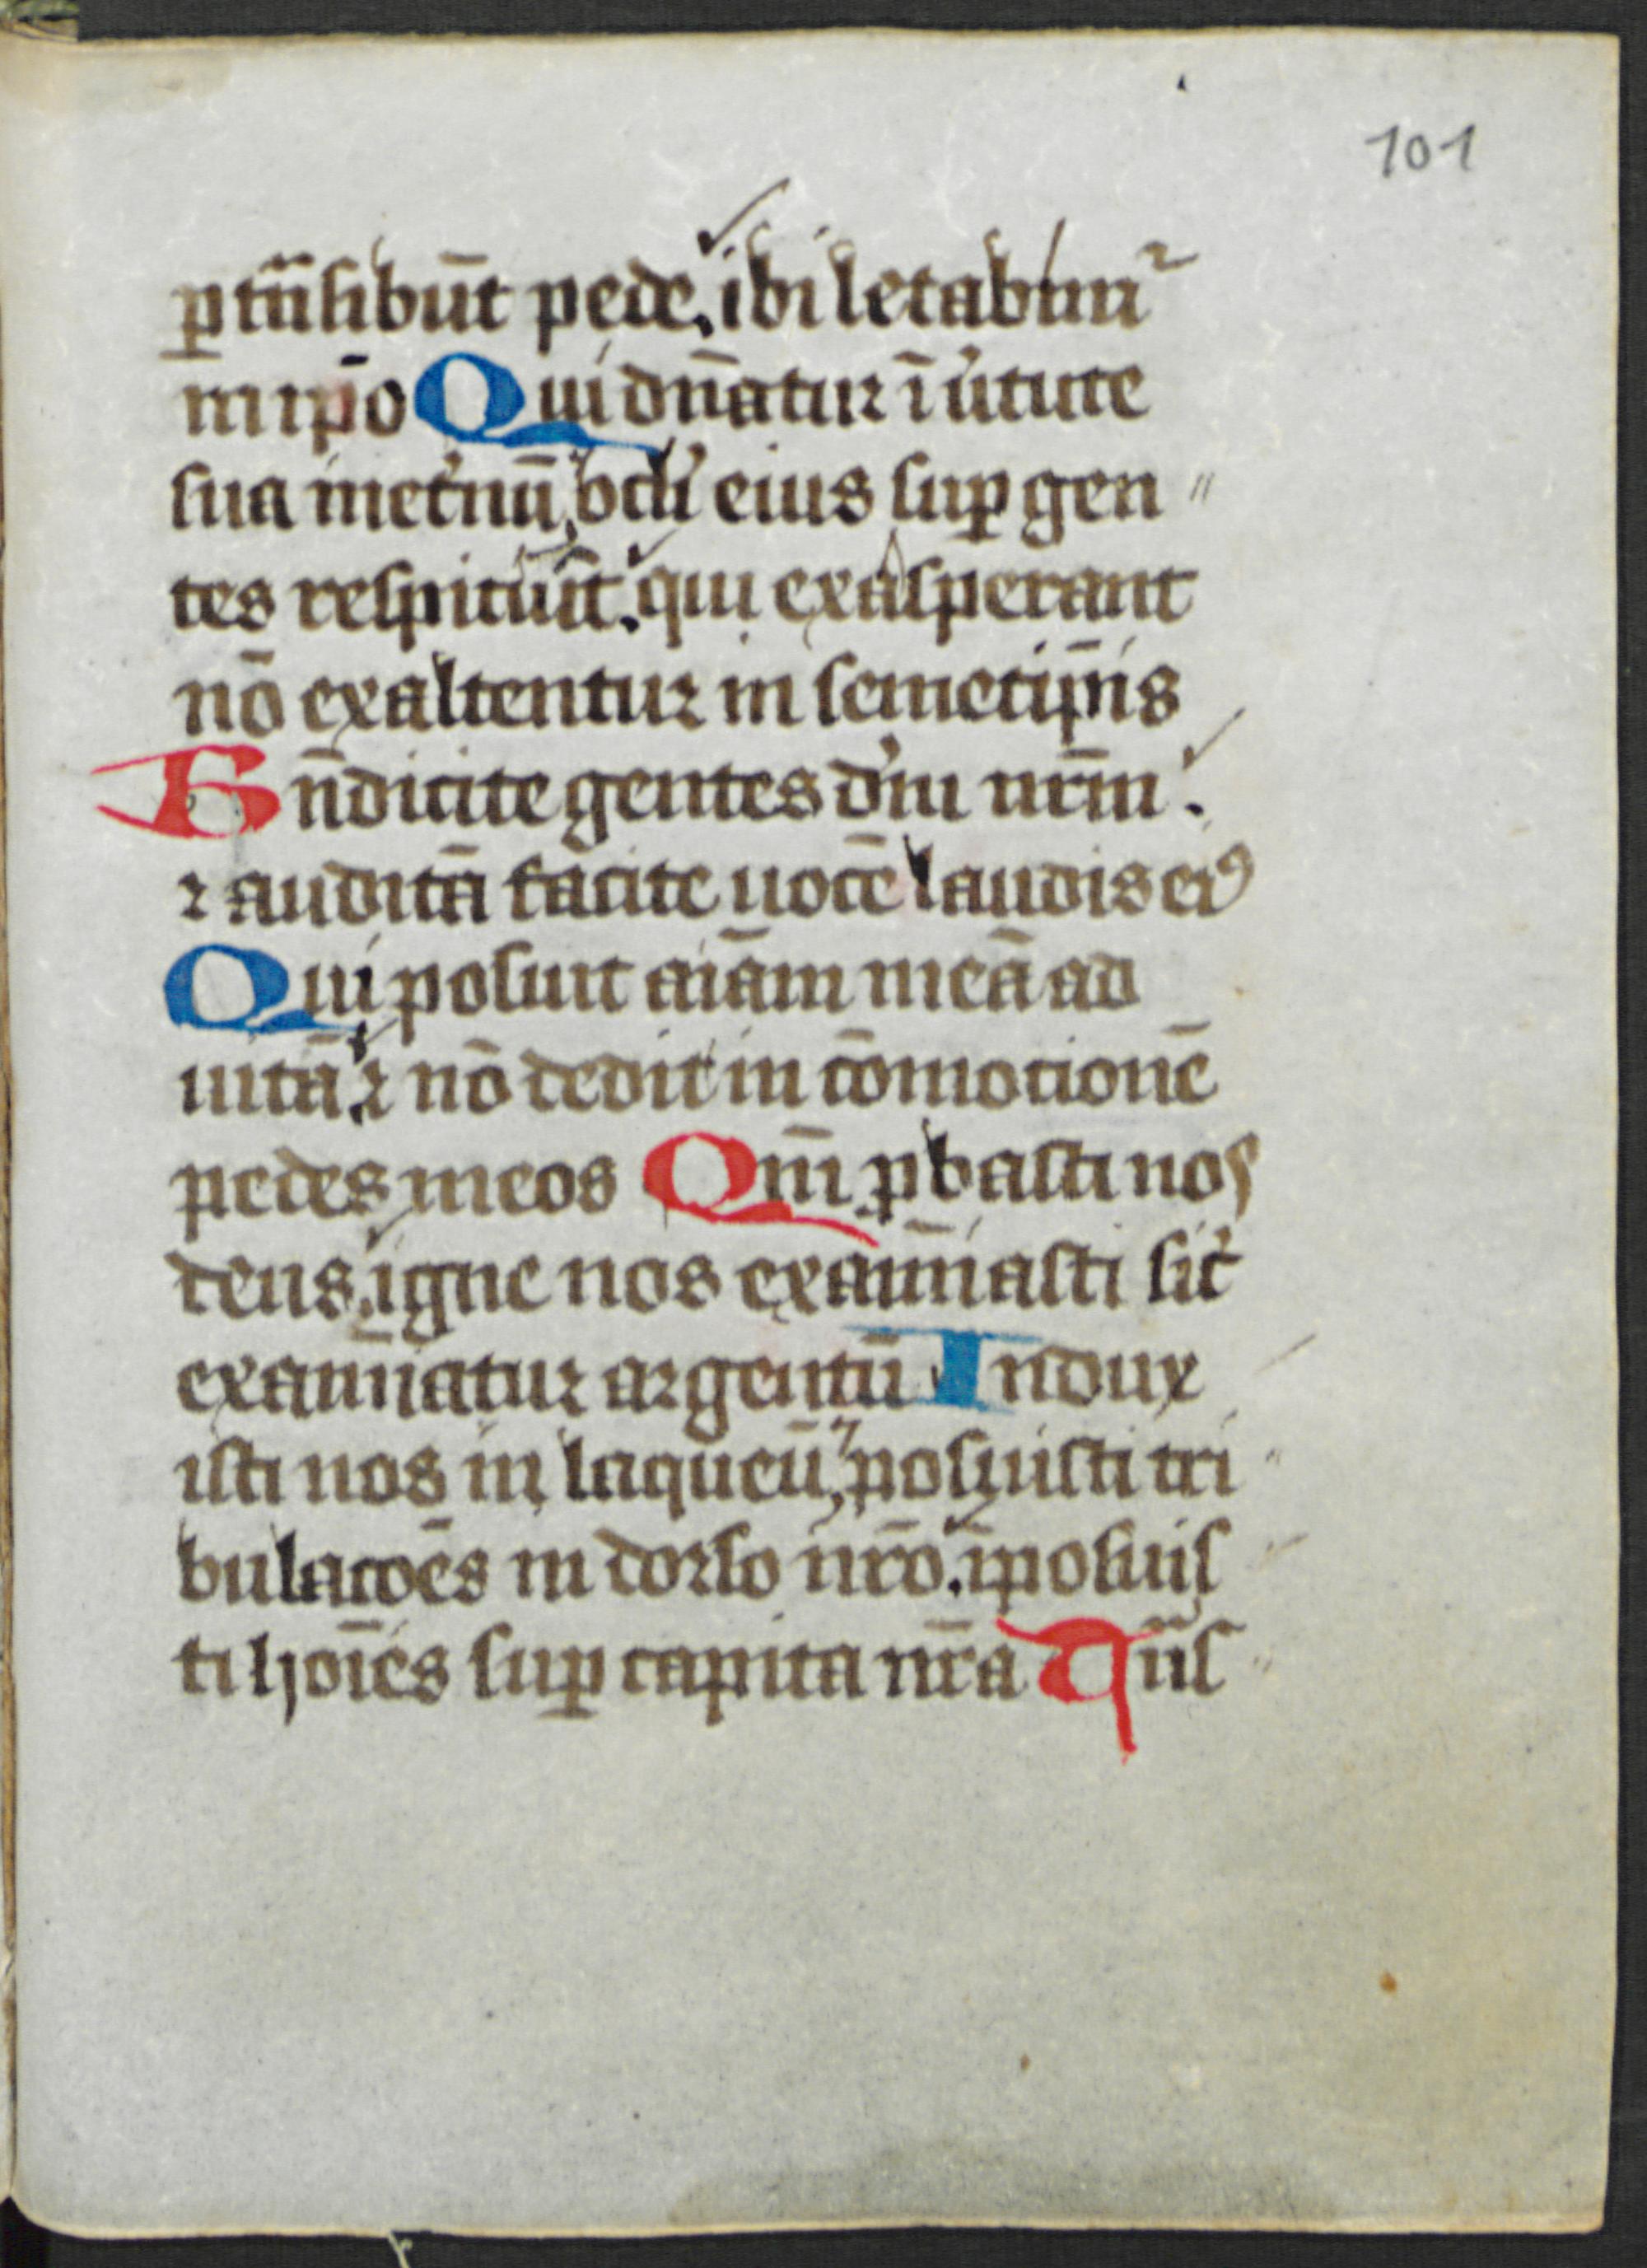 101
ꝑtn̄sibūt pede. ibi letabim᷑
in ip̄o Qui dn̄atur ī u͛tute
sua inet͛nū, ocl͛i eius suꝑ gen〃
tes respitiūt. qui exasperant
nō exaltentur in semetip̄is
Bn̄dicite gentes d͛m nr̄m.
⁊ auditā facite uocē laudis eiꝯ
Qui posuit aīam meā ad
uitā. ⁊ nō dedit in cōmotionē
pedes meos Qm̄ ꝓbasti nos
deus, igne nos examīasti sic͛
examīatur argentū Indux
isti nos in laqueū, posuisti tri〃
bulacōes in dorso nr̄o. īposuis〃
ti hoīes suꝑ capita nr̄a Tn̄s〃